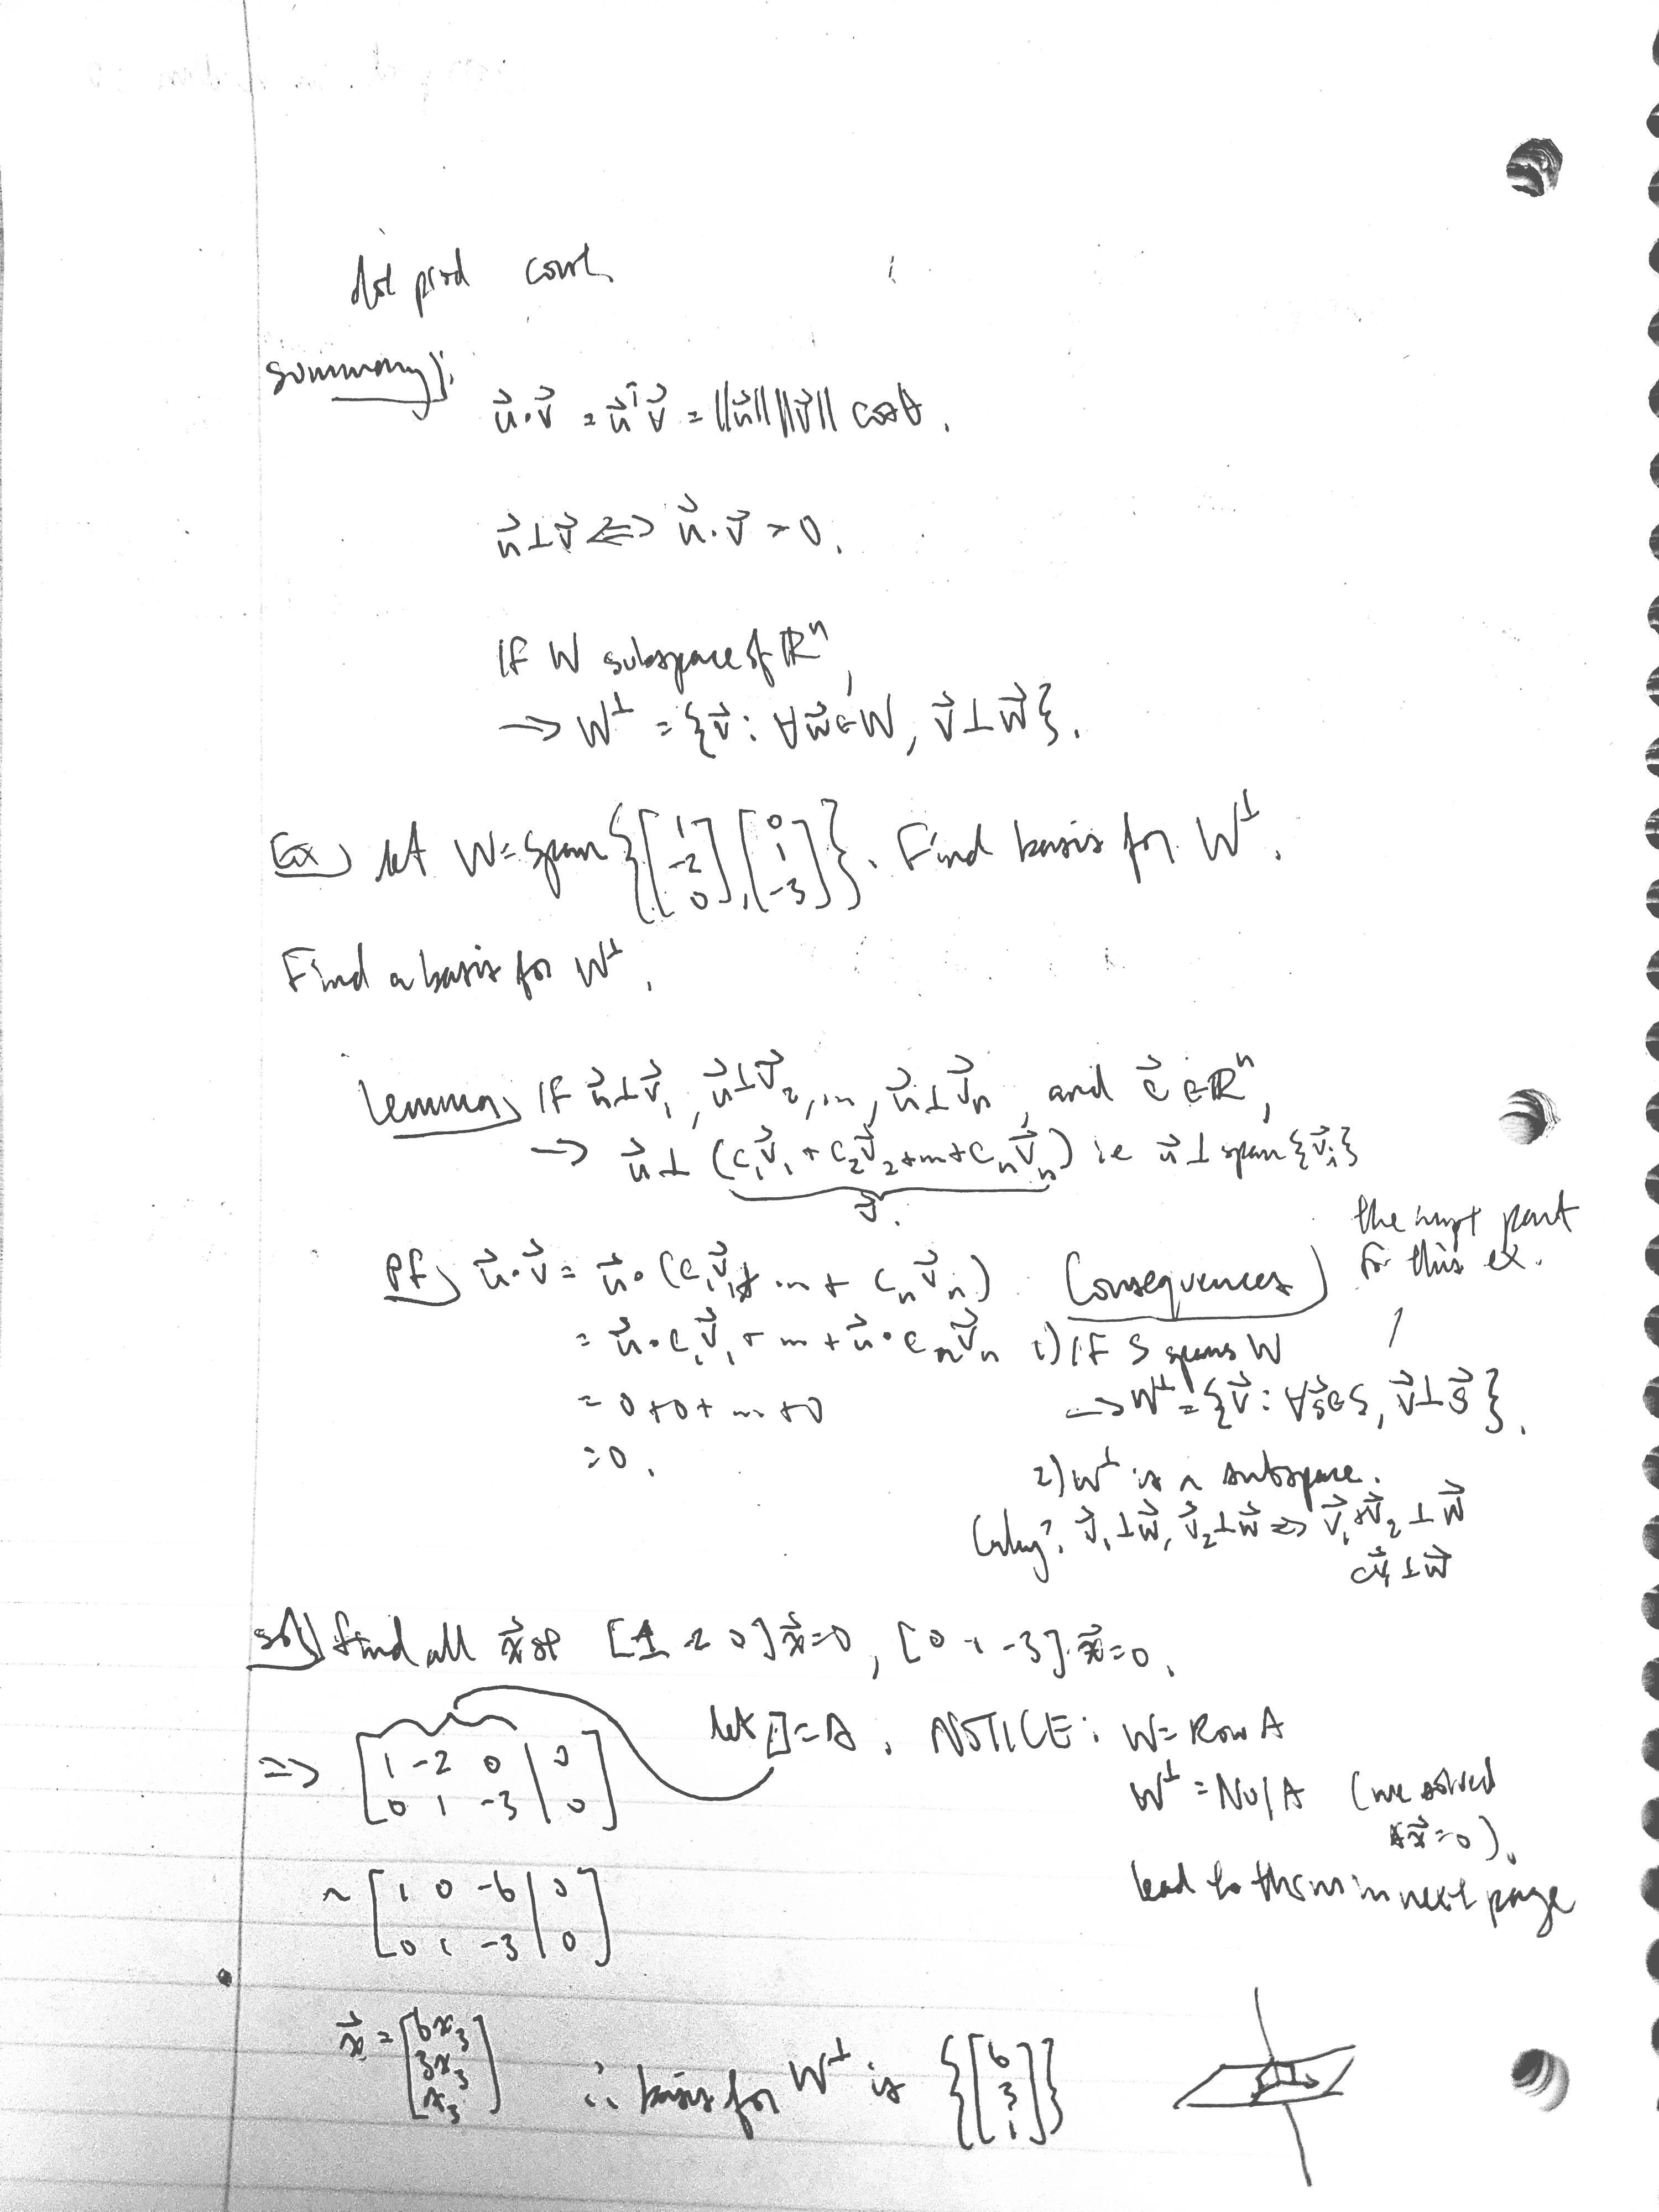 dot prod cont.
summary):
u⃗·v⃗ = u⃗ᵀv⃗ = ||u⃗|| ||v⃗|| cosθ.
u⃗⊥v⃗ ⇔ u⃗·v⃗ = 0.
If W subspace of ℝⁿ,
→ W⊥ = {v⃗: ∀w⃗∈W, v⃗⊥w⃗}.
Ex) let W = span {[1 -2 0], [0 1 -3]}. Find basis for W⊥.
Find a basis for W⊥.
Lemma) If u⃗⊥v⃗₁, u⃗⊥v⃗₂, ..., u⃗⊥v⃗ₙ, and c⃗∈ℝⁿ,
→ u⃗⊥(c₁v⃗₁ + c₂v⃗₂ + ... + cₙv⃗ₙ) ie u⃗⊥span{v⃗ᵢ}
v⃗.
Pf) u⃗·v⃗ = u⃗·(c₁v⃗₁ + ... + cₙv⃗ₙ)
= u⃗·c₁v⃗₁ + ... + u⃗·cₙv⃗ₙ
= 0+0+...+0
= 0.
the part
for this ex.
Consequences)
1) If S spans W
→ W⊥ = {v⃗: ∀s⃗∈S, v⃗⊥s⃗}.
2) W⊥ is a subspace.
(why? v⃗₁⊥w⃗, v⃗₂⊥w⃗ ⇒ v⃗₁+v⃗₂⊥w⃗
cv⃗₁⊥w⃗
sol) find all x⃗ st [1 -2 0]x⃗=0, [0 1 -3]·x⃗=0.
⇒ [1 -2 0 | 0
0 1 -3 | 0]
let []=A. NOTICE: W = Row A
W⊥ = Nul A (we solved
Ax⃗=0).
lead to thm in next page
~ [1 0 -6 | 0
0 1 -3 | 0]
x⃗ = [6x₃
3x₃
x₃]
∴ basis for W⊥ is {[6 3 1]}